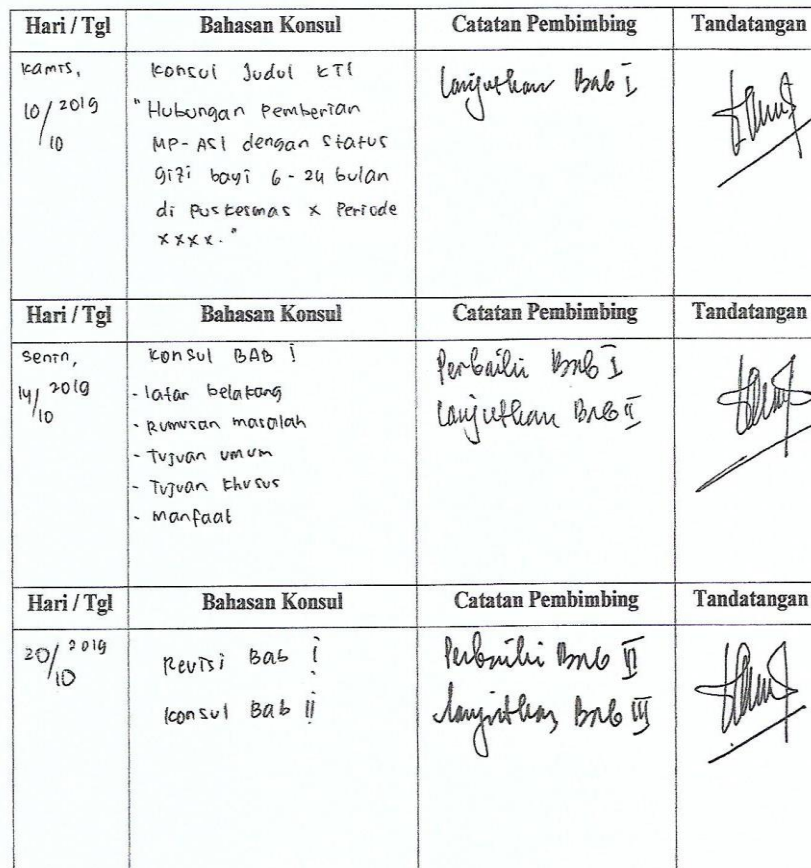 Hari / Tgl Bahasan Konsul Catatan Pembimbing Tandatangan
Kamis,
10/10 2019
Konsul Judul KTI
"Hubungan Pemberian
MP-ASI dengan Status
gizi bayi 6-24 bulan
di Puskesmas x Periode
xxxx."
Lanjutkan Bab I
Hari / Tgl Bahasan Konsul Catatan Pembimbing Tandatangan
Senin,
14/10 2019
Konsul BAB I
- latar belakang
- Rumusan masalah
- Tujuan umum
- Tujuan khusus
- Manfaat
Perbaiki Bab I
Lanjutkan Bab II
Hari / Tgl Bahasan Konsul Catatan Pembimbing Tandatangan
20/10 2019
Revisi Bab I
Konsul Bab II
Perbaiki Bab II
Lanjutkan Bab III